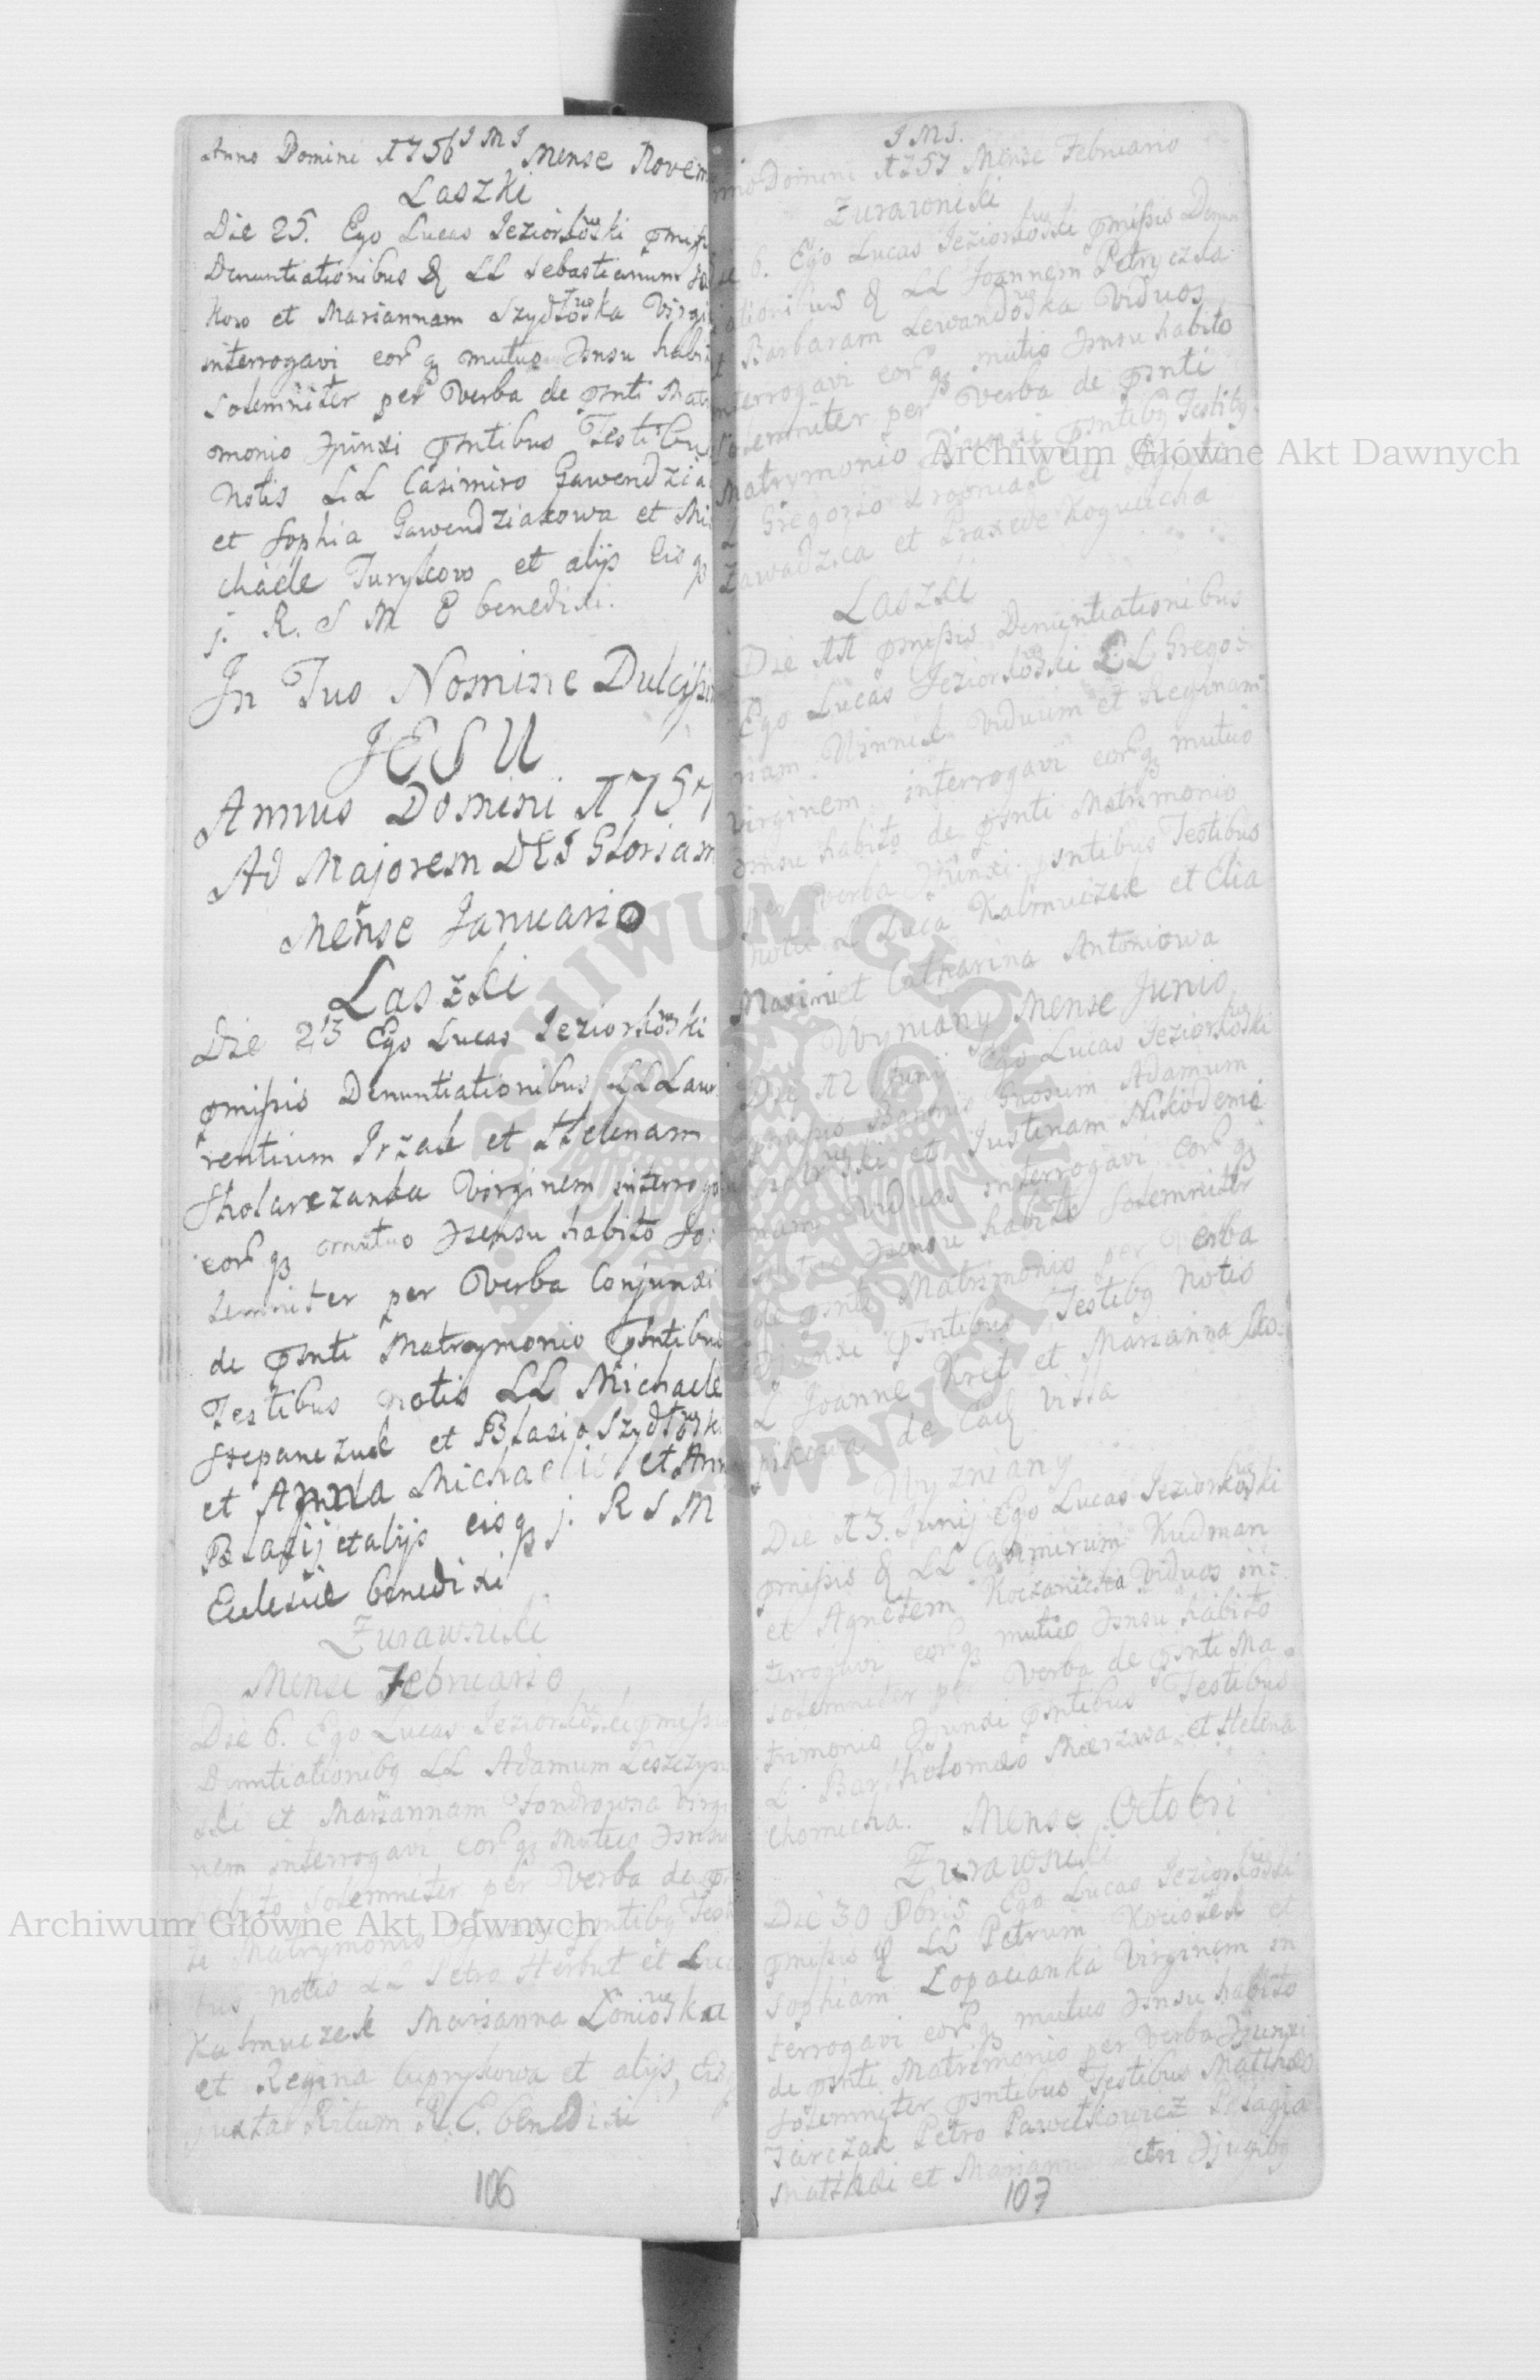 Anno Domini 1756 J M J Mense Novem
Laszki
Die 25. Ego Lucas Jeziorkowski pmissis
Denuntiationibus & LL Sebastianum
et Mariannam Szydłowska Virgi
interrogavi eorq mutuo Jsnsu habi
Solemniter per Verba de psnti Matr
omonio Jjunxi psntibus Testibu
Notis LL Casimiro Gawendzia
et Sophia Gawendziakowa et Mi
chaele Turykowo et alijs Eisq
j. R. S M E benedixi.
In Tuo Nomine Dulcissi
JESU
Annus Domini 1757
Ad Majorem DEI Gloriam
Mense Januario
Laszki
Die 23 Ego Lucas Jeziorkowski
pmissis Denuntiationibus LL Law
rentium Irzak et Helenam
Skolarczanka Virginem interroga
eorq mutuo Jsensu habito So:
lemniter per Verba Conjunxi
de psnti Matrymonio Psntibus
Testibus notis LL Michaele
Stepanczuk et Blasio Szydłowski
et Anna Michaelis et Ann
Blasij et alijs eisq j. R S M
Eclesiæ benedixi
Zurawniki
Mense Februario
Die 6. Ego Lucas Jeziorkowski pmissis
Denuntiationibq LL Adamum Leszczyn
ski et Mariannam Fondrowna Virgi
nem interrogavi eorq mutuo Jsnsu
habito Solemniter per Verba de psn
ti Matrymonio Jjunxi psntibq Testi
bus notis LL Petro Herbut et Luca
Kalmuczak Marianna Łoniowska
et Regina Cuprykowa et alijs, Eisq
juxta Ritum R. E. benedixi
106
J M J.
Domini 1757 Mense Februario
Zurawniki
6. Ego Lucas Jeziorkowski pmissis Denun
ationibus & LL Joannem Petryczka
Barbaram Lewandowska Viduos
interrogavi eorq mutuo Jsnsu habito
Solemniter per Verba de psnti
Matrymonio Jjunxi psntibq Testibq
L Gregorio et
Zawadzka et Praxede Kogucicha
Laszki
Die 11 pmissis Denuntiationibus
Ego Lucas Jeziorkowski LL Grego:
rium Viduum et Reginam
Virginem interrogavi eorq mutuo
Jsnsu habito de psnti Matrimonio
per Verba Jjunxi psntibus Testibus
notis L Luca Kalmuczak et Elia
Maximi et Catharina Antoniowa
Wyniany Mense Junio
Die 12 Junij Ego Lucas Jeziorkowski
pmissis Bannis Gnosum Adamum
et Justinam Nikodemia
nam Viduas interrogavi eorq
mutuo Jsensu habito Solemniter
de psnti Matrimonio per Verba
Jjunxi psntibus Testibq Notis
L Joanne Kret et Marianna Sko:
pikowa de Ead Villa
Wyzniany
Die 13. Junij Ego Lucas Jeziorkowski
pmissis & LL Casimirum Kudman
et Agnetem Koczanicka Viduos in:
terrogavi eorq mutuo Jsnsu habito
solemniter per Verba de psnti Ma
trimonio Jjunxi psntibus Testibus
L. Bartholomæo Mierzwa et Helena
Chomicka. Mense Octobri
Zurawniki
Die 30 8bris Ego Lucas Jeziorkowski
pmissis & LL Petrum Kociołek et
Sophiam Łopacianka Virginem in
terrogavi eorq mutuo Jsnsu habito
de psnti Matrimonio per Verba Jjunxi
Solemniter psntibus Testibus Matthæo
Jarczak Petro Pawełkowicz Pelagia
Matthæi et Marianna Petri Jjugibq
107
Archiwum Główne Akt Dawnych
Archiwum Główne Akt Dawnych
ARCHIWUM GŁÓWNE AKT DAWNYCH